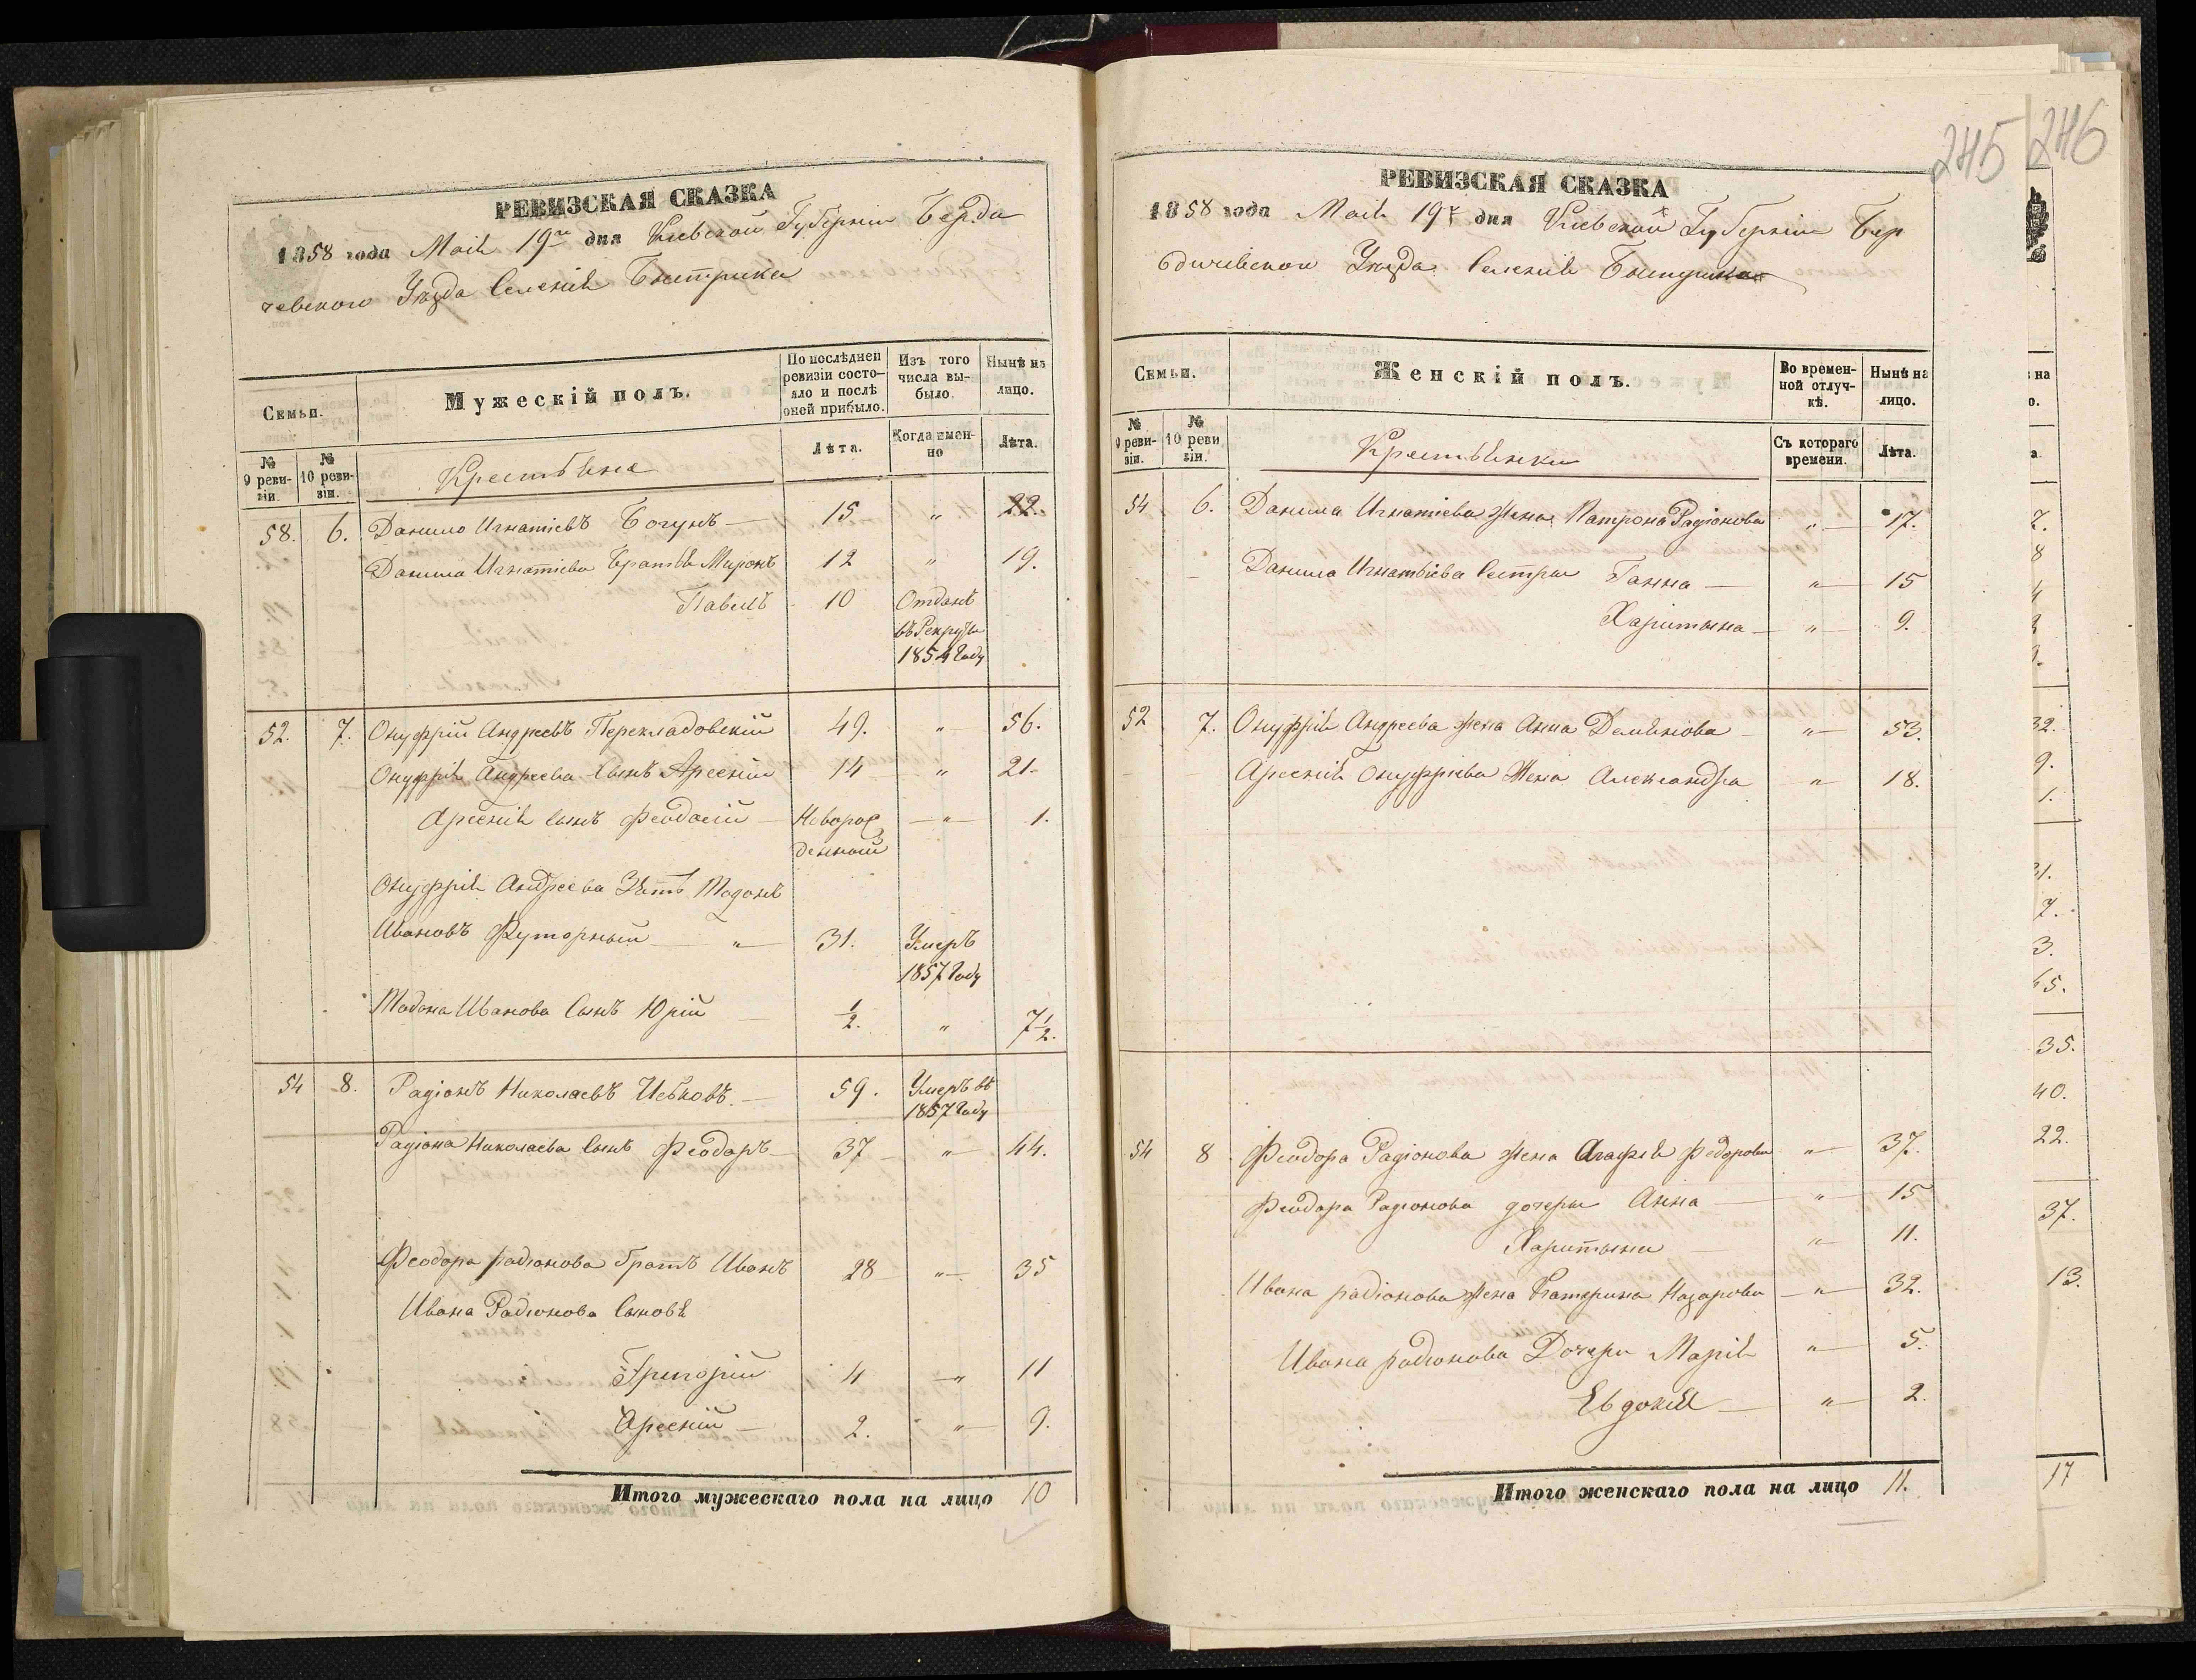 РЕВИЗСКАЯ СКАЗКА
1858 года Маія 19го дня Кіевской Губерніи Берди
чевского Уѣзда Селенія Быстрика
Семьи.
Мужескій полъ.
По послѣдней ревизіи состояло и послѣ оной прибыло.
Изъ того числа выбыло.
Нынѣ на лицо.
№ 9 ревизіи.
№ 10 ревизіи.
Крестьяне
Лѣта.
Когда именно
Лѣта.
58. 6. Данило Игнатіевъ Богунъ 15 " 22.
Данила Игнатіева Братья Миронъ 12 " 19.
Павелъ 10 Отданъ
въ Рекруты
1854 Году
52. 7. Онуфрій Андреевъ Перекладовскій 49. " 56.
Онуфрія Андреева Сынъ Арсеній 14 " 21.
Арсенія сынъ Феодосій Новорож " 1.
денный
Онуфрія Андреева Зять Модонъ
Ивановъ Футорный " 31. Умеръ
1857 Году
Модона Иванова Сынъ Юрій ½. " 7½.
54 8. Радіонъ Николаевъ 59. Умеръ въ
1857 Году
Радіона Николаева Сынъ Феодаръ 37 " 44.
Феодора радіонова братъ Иванъ 28 " 35
Ивана Радіонова Сыновя
Григорій 4 " 11
Арсеній 2. " 9.
Итого мужескаго пола на лицо 10
245
246
РЕВИЗСКАЯ СКАЗКА
1858 года Маія 19го дня Кіевской Губерніи Бер
дичевскои Уѣзда Селенія Быстрика
Семьи.
Женскій полъ.
Во временной отлучкѣ.
Нынѣ на лицо.
№ 9 ревизіи.
№ 10 ревизіи.
Крестьянки
Съ котораго времени.
Лѣта.
54 6. Данила Игнатіева жена Матрона Радіонова " 17.
Данила Игнатьіева Сестры Ганна " 15
Харитына " 9.
52 7. Онуфрія Андреева жена Анна Демянова " 53.
Арсенія Онуфріева Жена Александра " 18.
54 8 Феодора Радіонова жена Агафія Федорова " 37.
Феодора Радіонова дочеры Анна " 15
Харитына " 11.
Ивана радіонова жена Катерина Назарова " 32.
Ивана родіонова Дочери Марія " 5.
Евдокія " 2.
Итого женскаго пола на лицо 11.
на
о.
а
7.
8
4
32.
9.
1.
31.
7.
3.
65.
35.
40.
22.
37.
13.
17